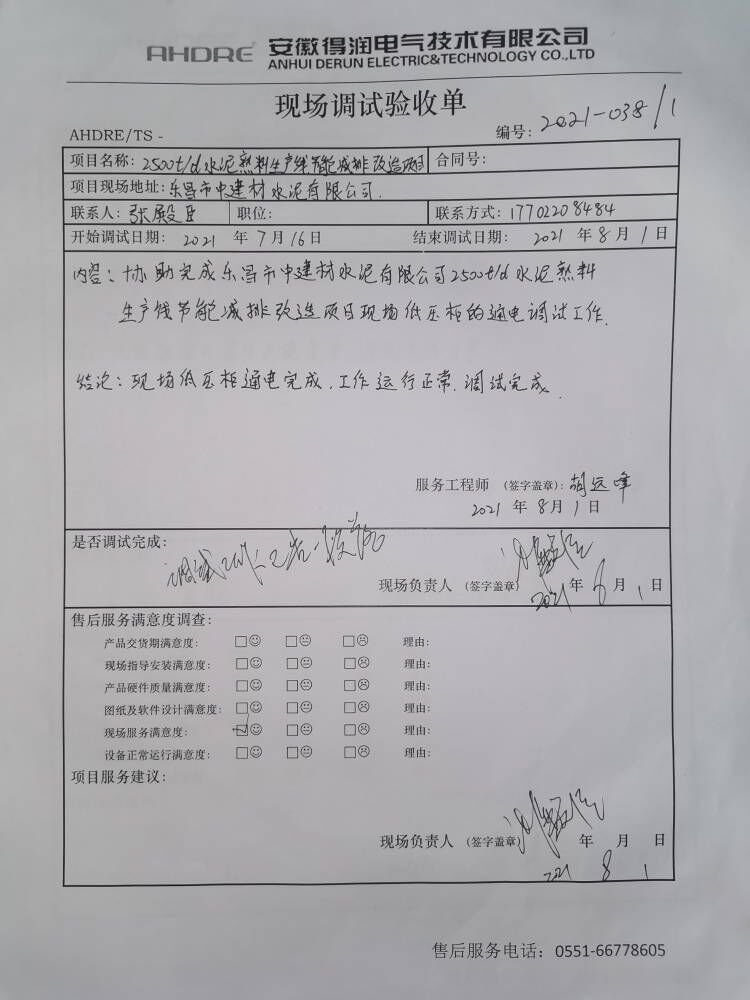 AHDRE 安徽得润电气技术有限公司
ANHUI DERUN ELECTRIC&TECHNOLOGY CO.,LTD
现场调试验收单
AHDRE/TS - 编号: 2021-038/1
项目名称: 2500t/d水泥熟料生产线节能减排改造项目 合同号:
项目现场地址: 乐昌市中建材水泥有限公司.
联系人: 张殿臣 职位: 联系方式: 17702208484
开始调试日期: 2021 年 7 月 16 日 结束调试日期: 2021 年 8 月 1 日
内容: 协助完成乐昌市中建材水泥有限公司2500t/d水泥熟料
生产线节能减排改造项目现场低压柜的通电调试工作.
结论: 现场低压柜通电完成.工作运行正常.调试完成.
服务工程师 (签字盖章): 胡远峰
2021 年 8 月 1 日
是否调试完成: 调试
现场负责人 (签字盖章)
2021 年 月 1 日
售后服务满意度调查:
产品交货期满意度: □☺ □😐 □☹ 理由:
现场指导安装满意度: □☺ □😐 □☹ 理由:
产品硬件质量满意度: □☺ □😐 □☹ 理由:
图纸及软件设计满意度: □☺ □😐 □☹ 理由:
现场服务满意度: ☑☺ □😐 □☹ 理由:
设备正常运行满意度: □☺ □😐 □☹ 理由:
项目服务建议:
现场负责人 (签字盖章) 年 月 日
2021 8 1
售后服务电话: 0551-66778605